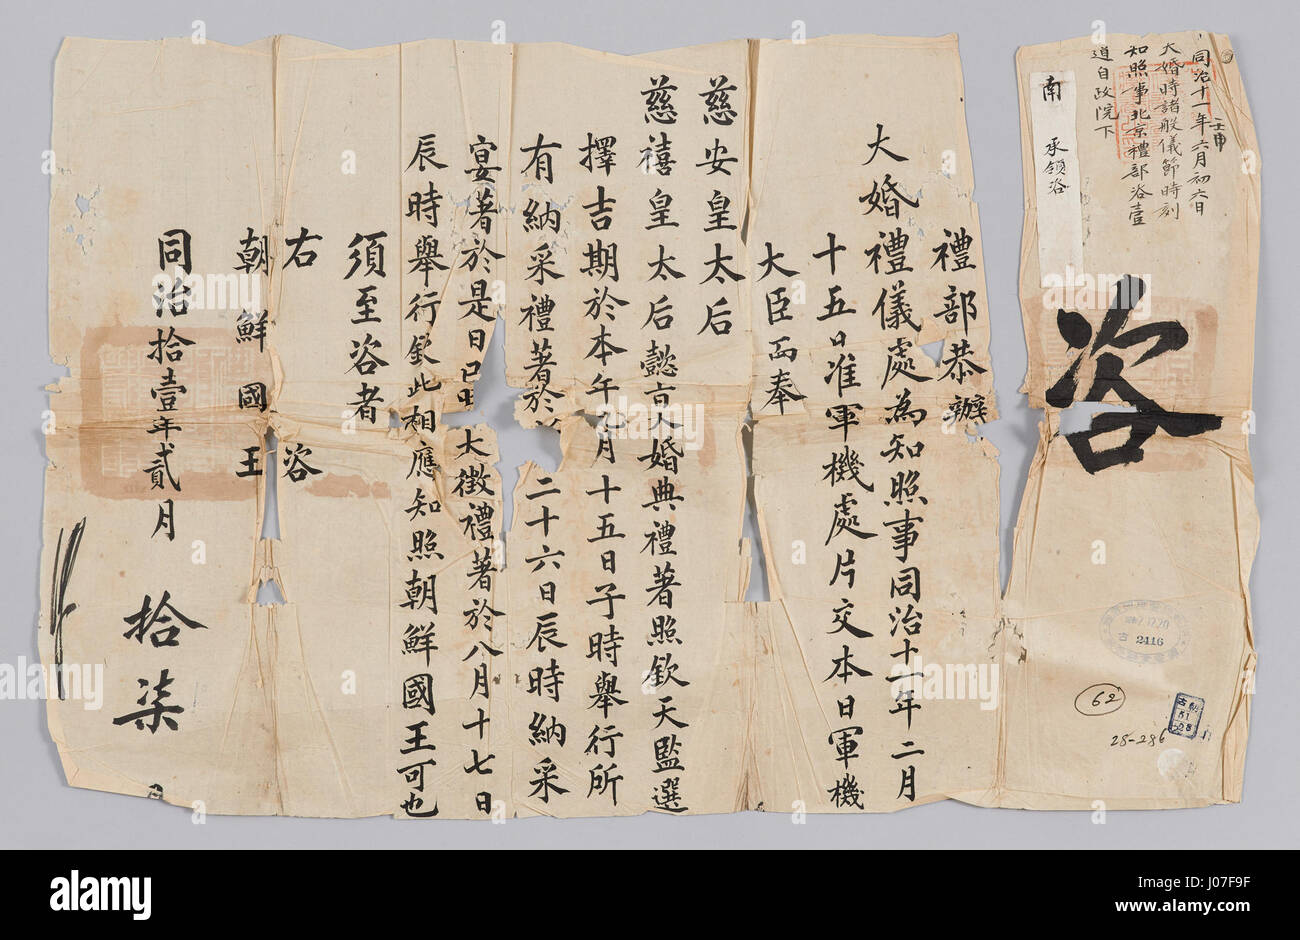 同治十一年六月初六日
壬申
大婚時諸般儀節時刻
知照事北京禮部咨壹
道自政院下
南 承領咨
咨
2416
62
28-286
禮部恭辦
大婚禮儀處為知照事同治十一年二月
十五日准軍機處片交本日軍機
大臣面奉
慈安皇太后
慈禧皇太后懿旨大婚典禮著照欽天監選
擇吉期於本年九月十五日子時舉行所
有納采禮著於 二十六日辰時納采
宴著於是日巳時 大徵禮著於八月十七日
辰時舉行欽此相應知照朝鮮國王可也
須至咨者
右 咨
朝鮮國王
同治拾壹年貳月 拾柒
alamy
alamy
Image ID: J07F9F
www.alamy.com